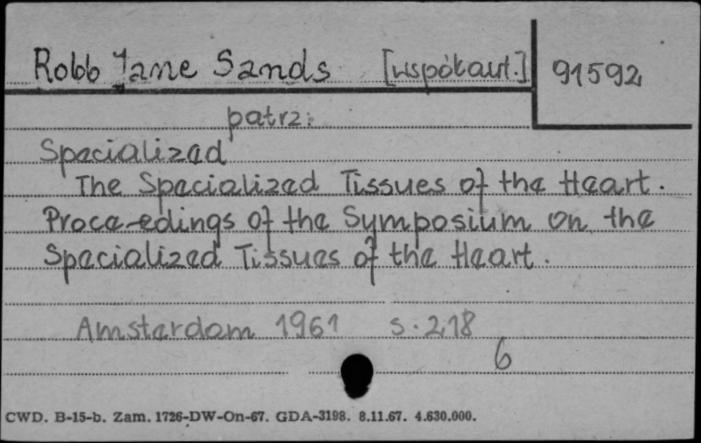 Robb Jane Sands [współaut.] 91592
patrz:
Specialized
The Specialized Tissues of the Heart.
Proce-edings of the Symposium on the
Specialized Tissues of the Heart.
Amsterdam 1961 s. 218
6
CWD. B-15-b. Zam. 1726-DW-On-67. GDA-3198. 8.11.67. 4.630.000.